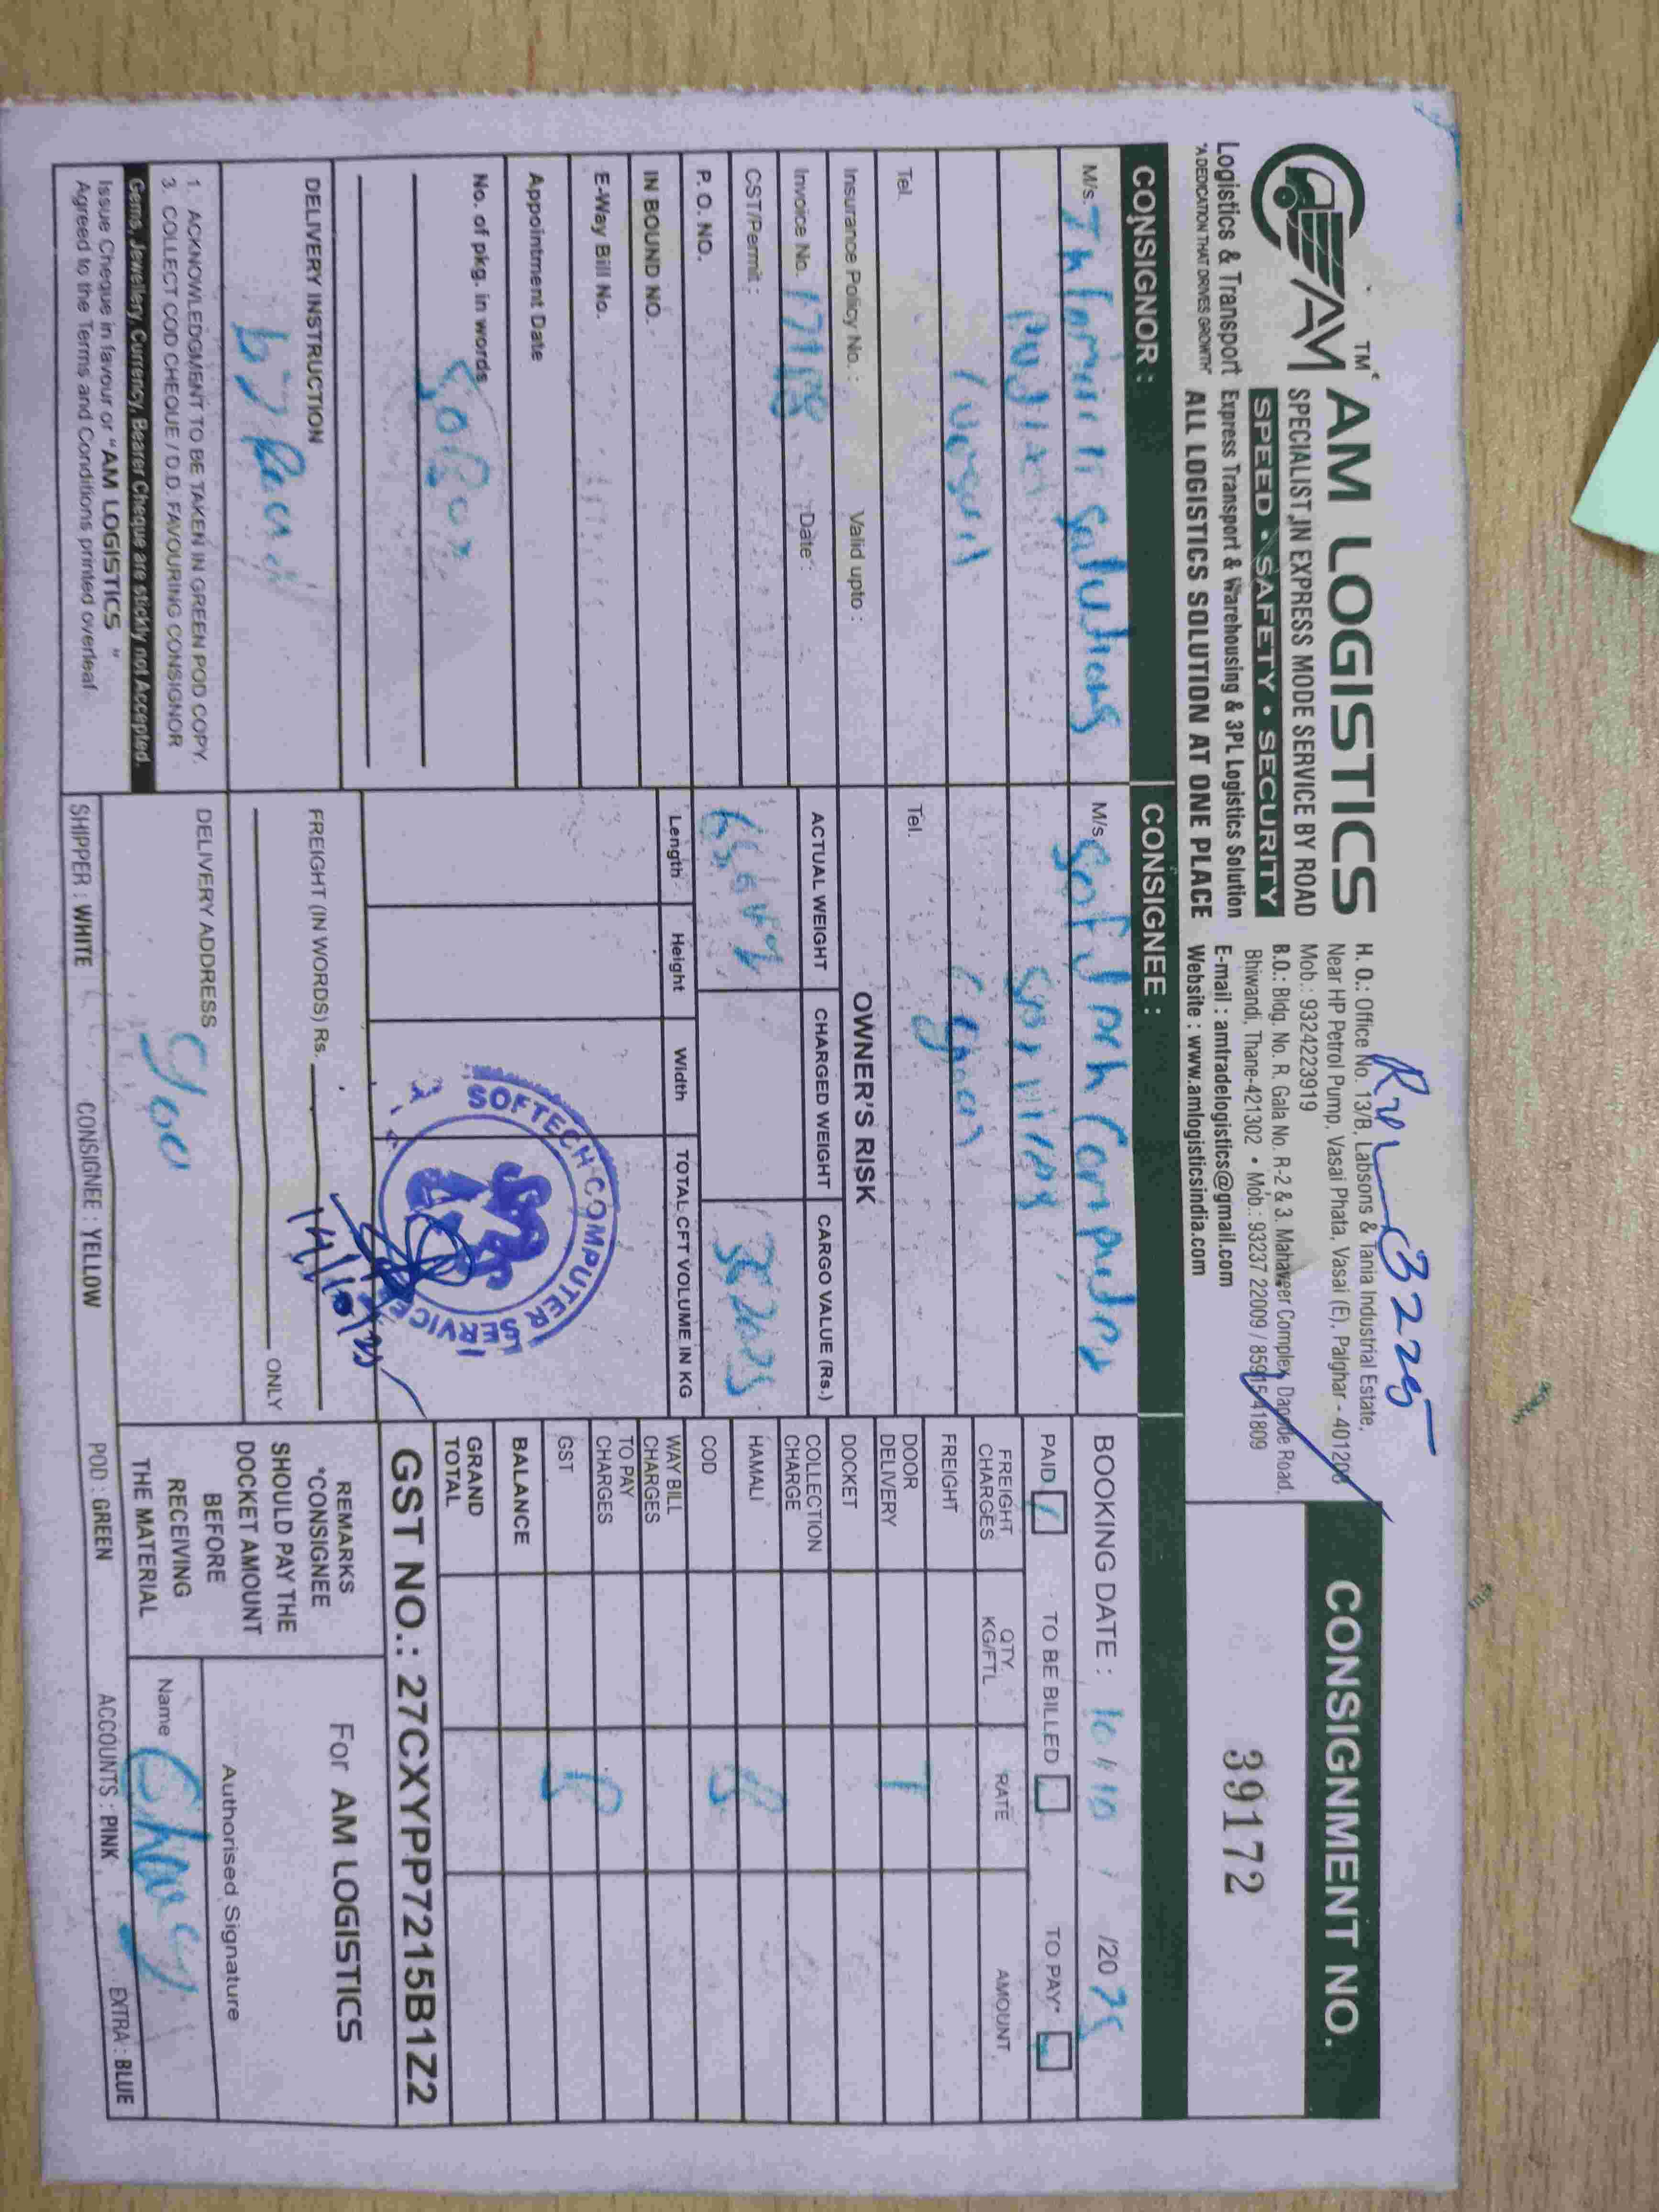 Rvl 3225
AM TM AM LOGISTICS
SPECIALIST IN EXPRESS MODE SERVICE BY ROAD
SPEED • SAFETY • SECURITY
Logistics & Transport Express Transport & Warehousing & 3PL Logistics Solution
"A DEDICATION THAT DRIVES GROWTH" ALL LOGISTICS SOLUTION AT ONE PLACE
H. O.: Office No. 13/B, Labsons & Tania Industrial Estate,
Near HP Petrol Pump, Vasai Phata, Vasai (E), Palghar - 401208
Mob.: 9324223919
B.O.: Bldg. No. R. Gala No. R-2 & 3. Mahaveer Complex, Dapode Road,
Bhiwandi, Thane-421302 • Mob.: 93237 22009 / 85915 41809
E-mail : amtradelogistics@gmail.com
Website : www.amlogisticsindia.com
CONSIGNMENT NO.
39172
CONSIGNOR :
M/s. solutions
Tel.
Insurance Policy No. : Valid upto :
Invoice No. Date :
CST/Permit :
P. O. NO.
IN BOUND NO.
E-Way Bill No.
Appointment Date
No. of pkg. in words
DELIVERY INSTRUCTION
1. ACKNOWLEDGMENT TO BE TAKEN IN GREEN POD COPY.
3. COLLECT COD CHEQUE / D.D. FAVOURING CONSIGNOR
Gems, Jewellery, Currency, Bearer Cheque are stickly not Accepted.
Issue Cheque in favour or "AM LOGISTICS"
Agreed to the Terms and Conditions printed overleaf
CONSIGNEE :
M/s. Computer
Tel.
OWNER'S RISK
ACTUAL WEIGHT CHARGED WEIGHT CARGO VALUE (Rs.)
Length Height Width TOTAL CFT VOLUME IN KG
SOFTECH COMPUTER SERVICES
14/10/25
FREIGHT (IN WORDS) Rs.
ONLY
DELIVERY ADDRESS
Goa
BOOKING DATE : 10 / 10 / 2025
PAID TO BE BILLED TO PAY*
FREIGHT CHARGES QTY. KG/FTL RATE AMOUNT
FREIGHT
DOOR DELIVERY
DOCKET
COLLECTION CHARGE
HAMALI
COD
WAY BILL CHARGES
TO PAY CHARGES
GST
BALANCE
GRAND TOTAL
GST NO.: 27CXYPP7215B1Z2
REMARKS
*CONSIGNEE
SHOULD PAY THE
DOCKET AMOUNT
BEFORE
RECEIVING
THE MATERIAL
For AM LOGISTICS
Authorised Signature
Name
SHIPPER : WHITE CONSIGNEE : YELLOW POD : GREEN ACCOUNTS : PINK EXTRA : BLUE